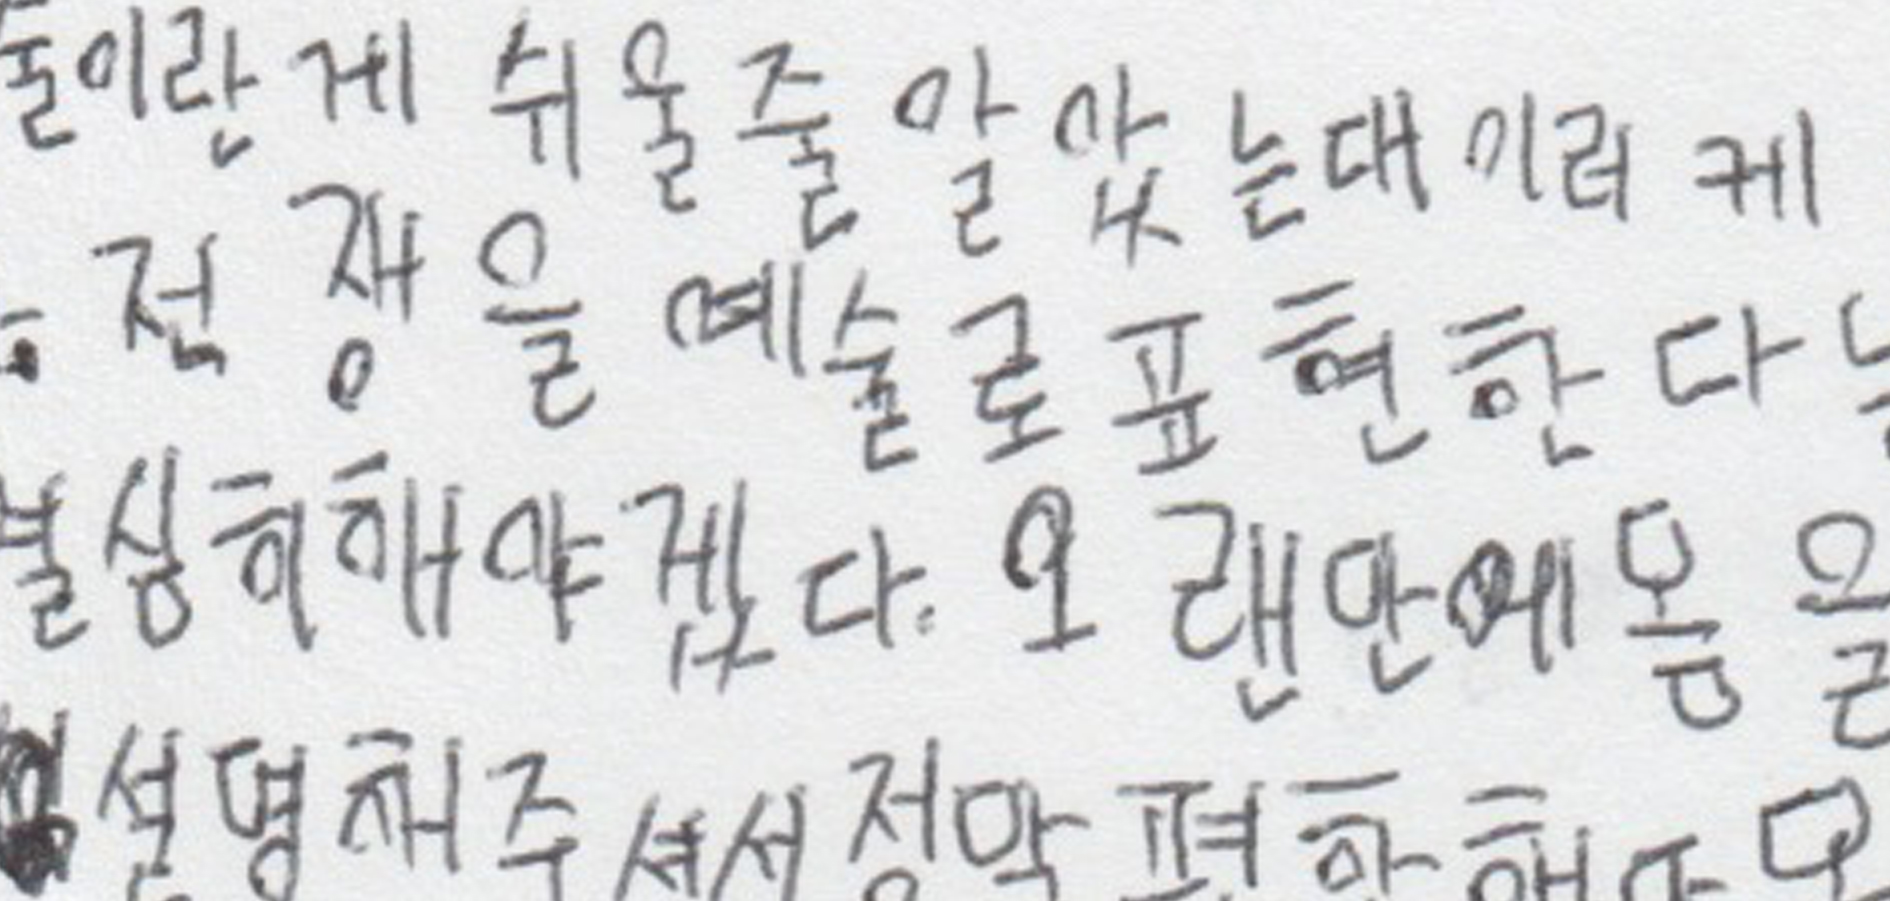 술이란 게 쉬울줄 알았는대 이러케
전쟁을 예술로 표현한다
열심히해야겠다. 오랜만에 몸을
설명해주셔서 정막 편한해